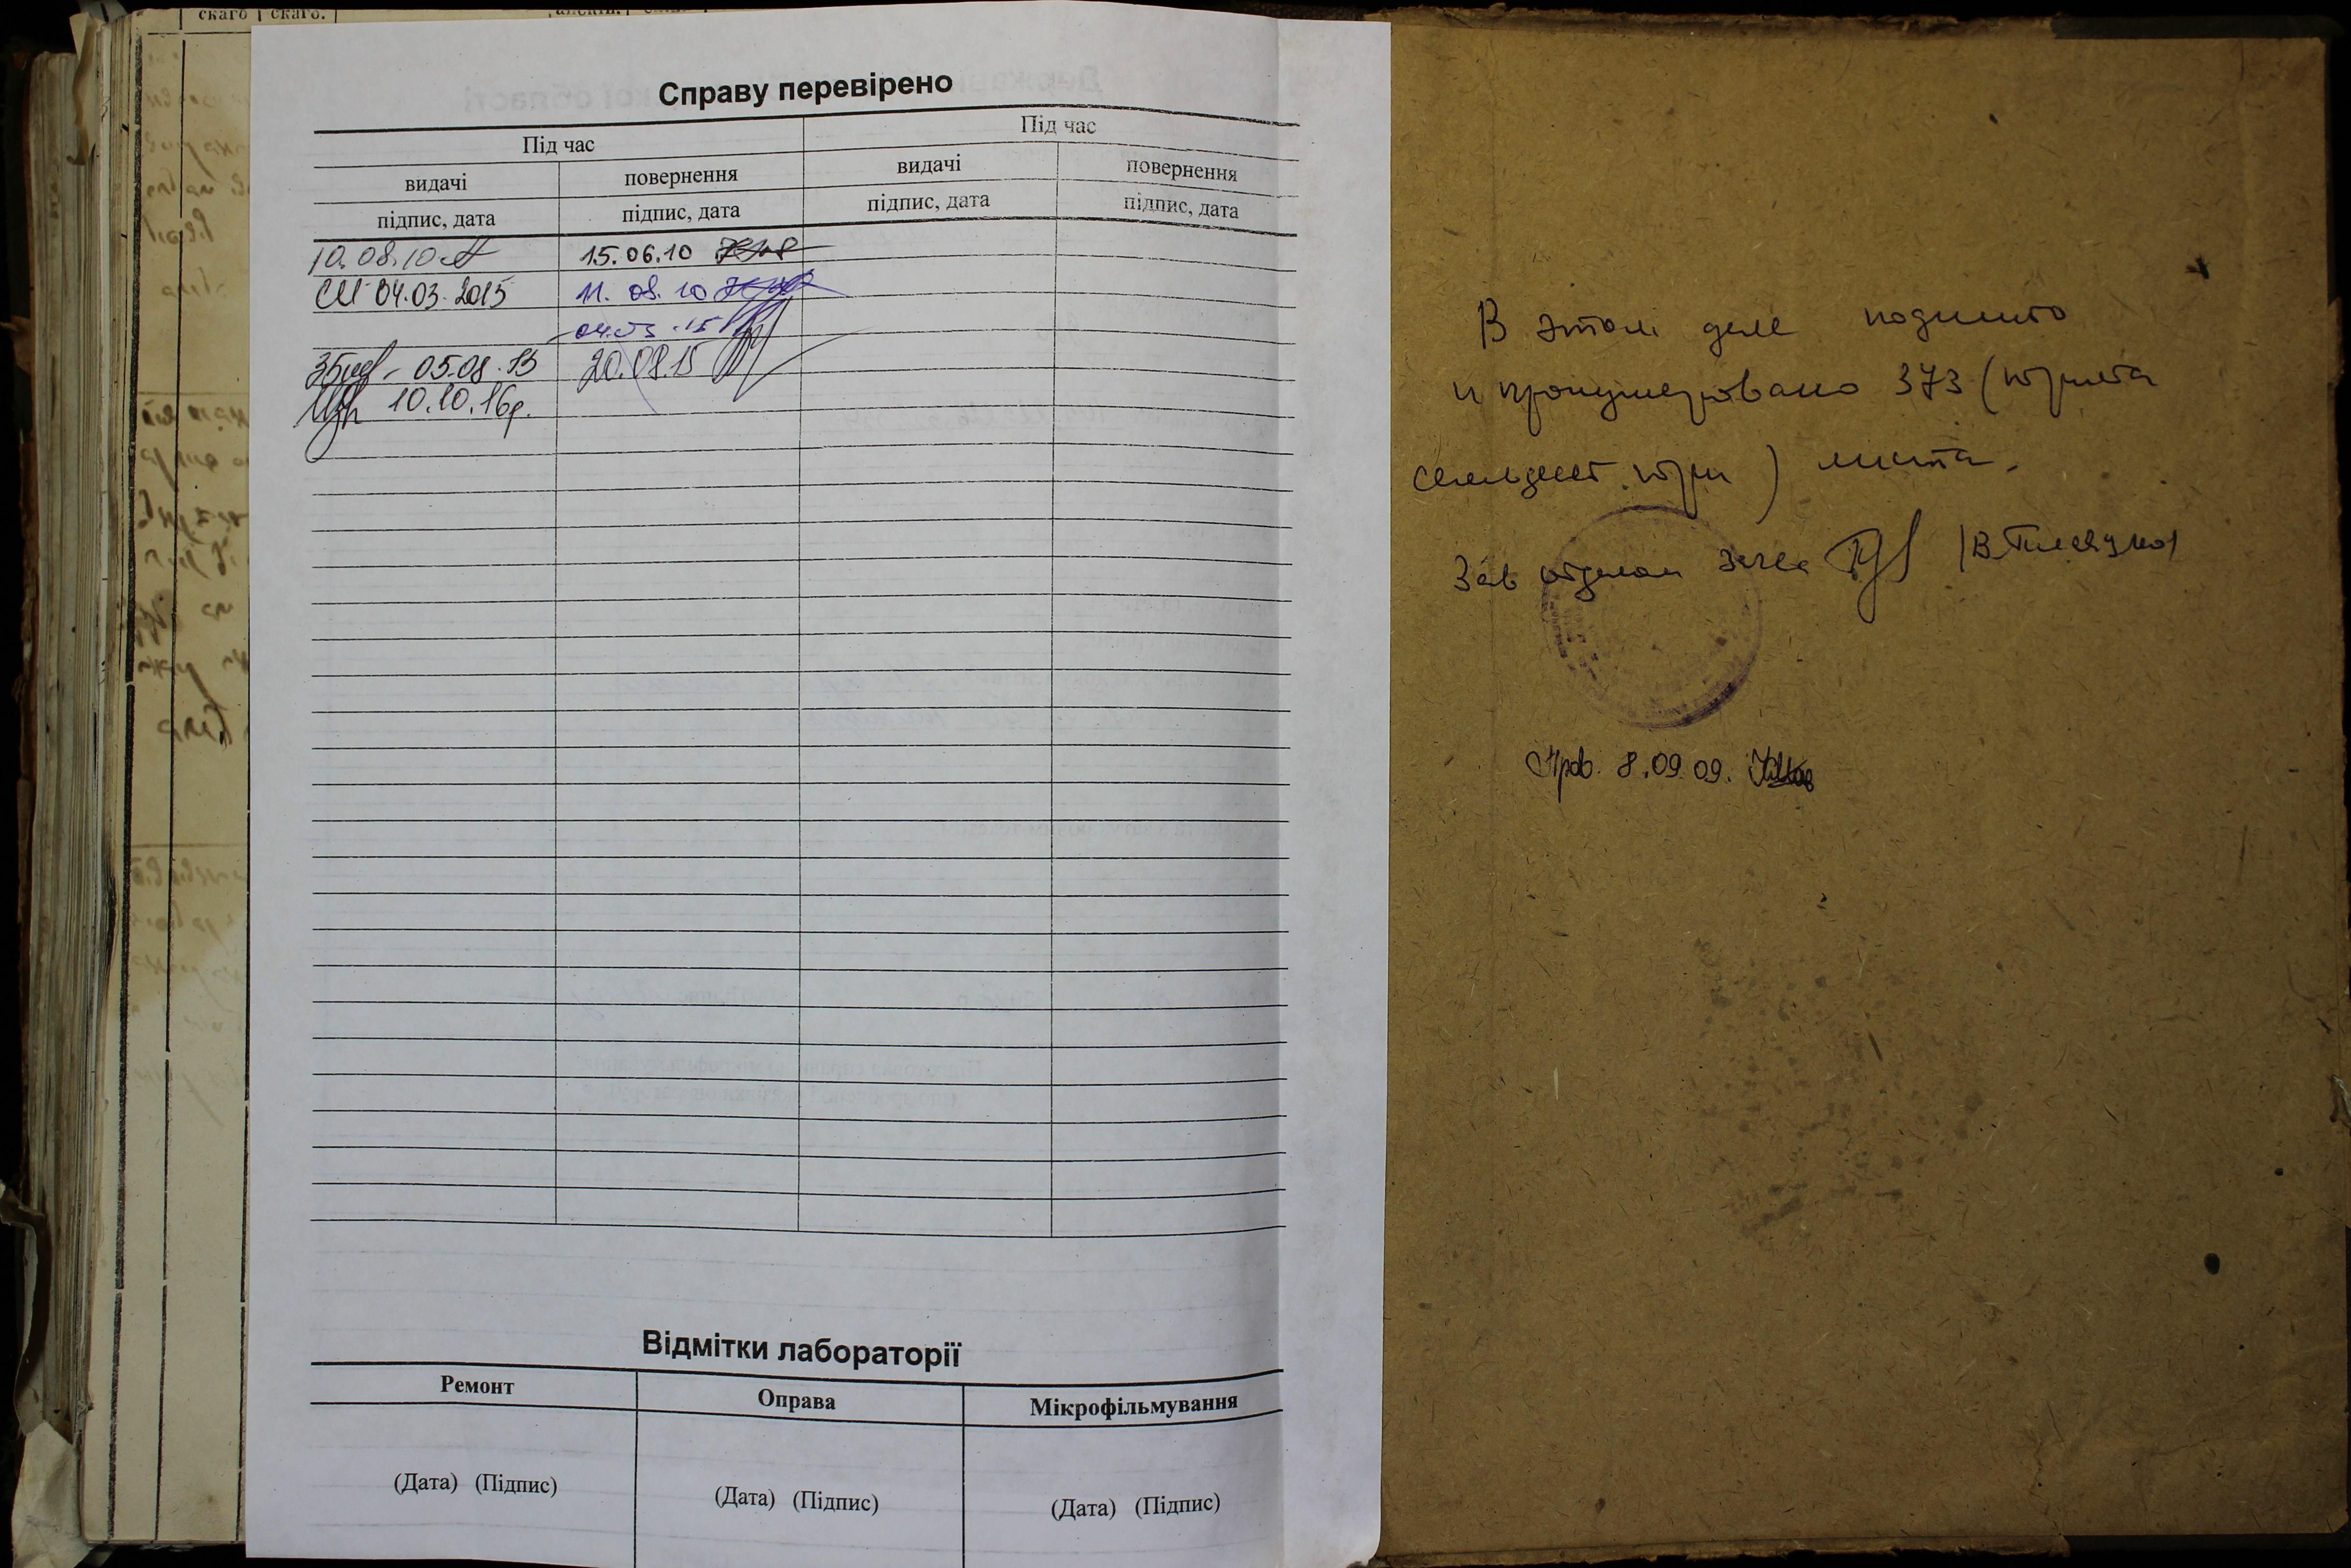 скаго скаго.
Справу перевірено
Під час Під час
видачі повернення видачі повернення
підпис, дата підпис, дата підпис, дата підпис, дата
10.08.10 15.06.10
04.03.2015 11.08.10
04.03.15
05.08.15 20.08.15
10.10.16р.
Відмітки лабораторії
Ремонт Оправа Мікрофільмування
(Дата) (Підпис) (Дата) (Підпис) (Дата) (Підпис)
В этом деле подшито
и пронумеровано 373 (триста
семьдесят три) листа.
Зав отделом загса
Пров. 8.09.09.